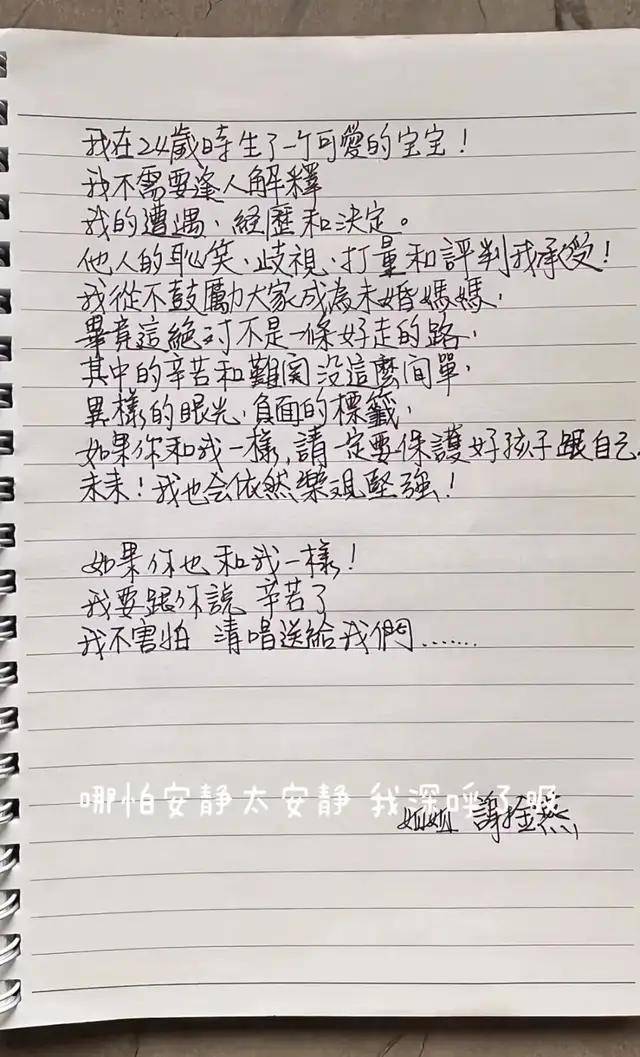 我在24歲時生了一个可愛的宝宝！
我不需要逢人解釋
我的遭遇、経歷和決定。
他人的恥笑、歧視、打量和評判我承受！
我從不鼓勵大家成為未婚媽媽，
畢竟這絕对不是一條好走的路，
其中的辛苦和難関没這麼间單，
異樣的眼光，負面的標籤，
如果你和我一樣，請一定要保護好孩子跟自己。
未來！我也会依然樂观堅強！
如果你也和我一樣！
我要跟你說 辛苦了
我不害怕 清唱送給我們.......
哪怕安静太安静 我深呼了吸
姐姐 謝金燕